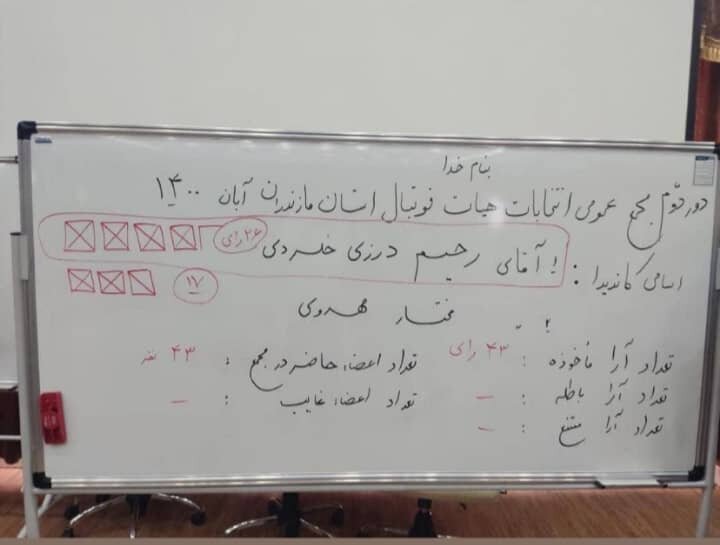 بنام خدا
دور دوّم مجمع عمومی انتخابات هیات فوتبال استان مازندران آبان ۱۴۰۰
اسامی کاندیدا :
! آقای رحیم درزی خلردی ۲۶ رای
مختار مهدوی ۱۷
تعداد آرا مأخوذه : ۴۳ رای
تعداد اعضاء حاضر در مجمع : ۴۳ نفر
تعداد آرا باطله : –
تعداد اعضاء غایب : –
تعداد آرا ممتنع : –